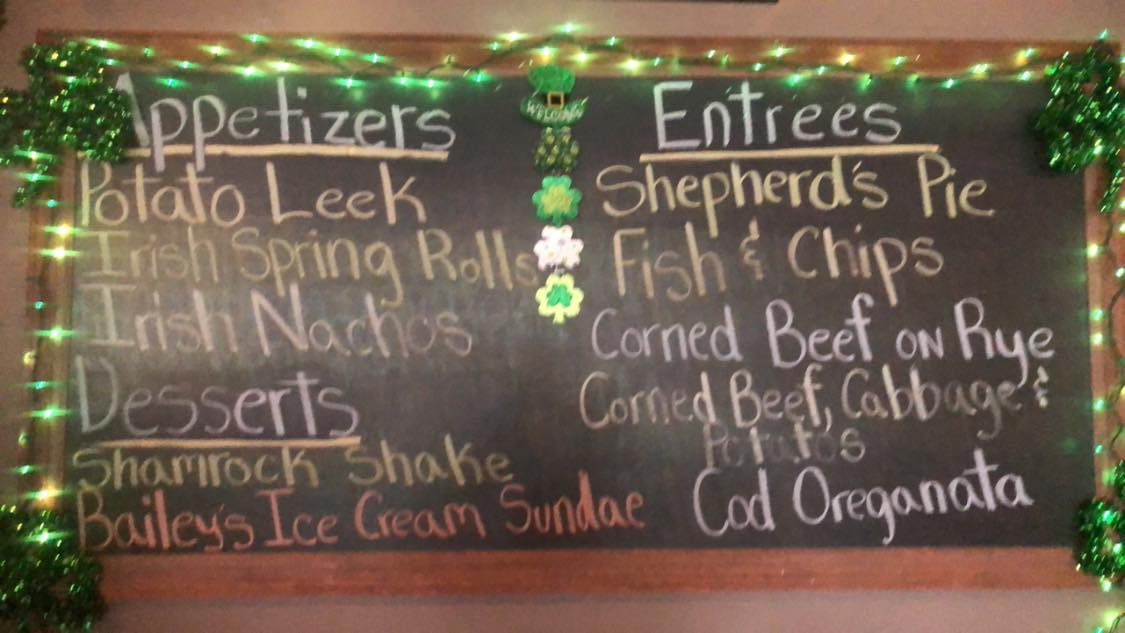 WELCOME
Appetizers
Potato Leek
Irish Spring Rolls
Irish Nachos
Desserts
Shamrock Shake
Bailey's Ice Cream Sundae
Entrees
Shepherd's Pie
Fish & Chips
Corned Beef on Rye
Corned Beef, Cabbage &
Potatos
Cod Oreganata